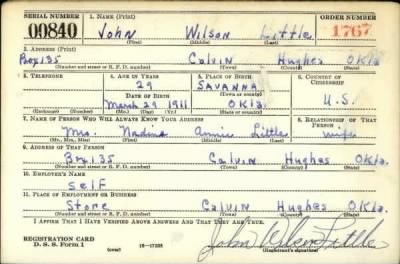 SERIAL NUMBER 1. NAME (Print) ORDER NUMBER
00840 John Wilson Little 1767
(First) (Middle) (Last)
2. ADDRESS (Print)
Box 135 Calvin Hughes Okla.
(Number and street or R. F. D. number) (Town) (County) (State)
3. TELEPHONE 4. AGE IN YEARS 5. PLACE OF BIRTH 6. COUNTRY OF CITIZENSHIP
29 SAVANNA
DATE OF BIRTH (Town or county)
March 29 1911 Okla. U.S.
(Exchange) (Number) (Mo.) (Day) (Yr.) (State or country)
7. NAME OF PERSON WHO WILL ALWAYS KNOW YOUR ADDRESS 8. RELATIONSHIP OF THAT PERSON
Mrs. Nadine Annie Little wife
(Mr., Mrs., Miss) (First) (Middle) (Last)
9. ADDRESS OF THAT PERSON
Box 135 Calvin Hughes Okla.
(Number and street or R. F. D. number) (Town) (County) (State)
10. EMPLOYER'S NAME
Self
11. PLACE OF EMPLOYMENT OR BUSINESS
Store Calvin Hughes Okla.
(Number and street or R. F. D. number) (Town) (County) (State)
I AFFIRM THAT I HAVE VERIFIED ABOVE ANSWERS AND THAT THEY ARE TRUE.
REGISTRATION CARD John Wilson Little
D. S. S. Form 1 (over) (Registrant's signature)